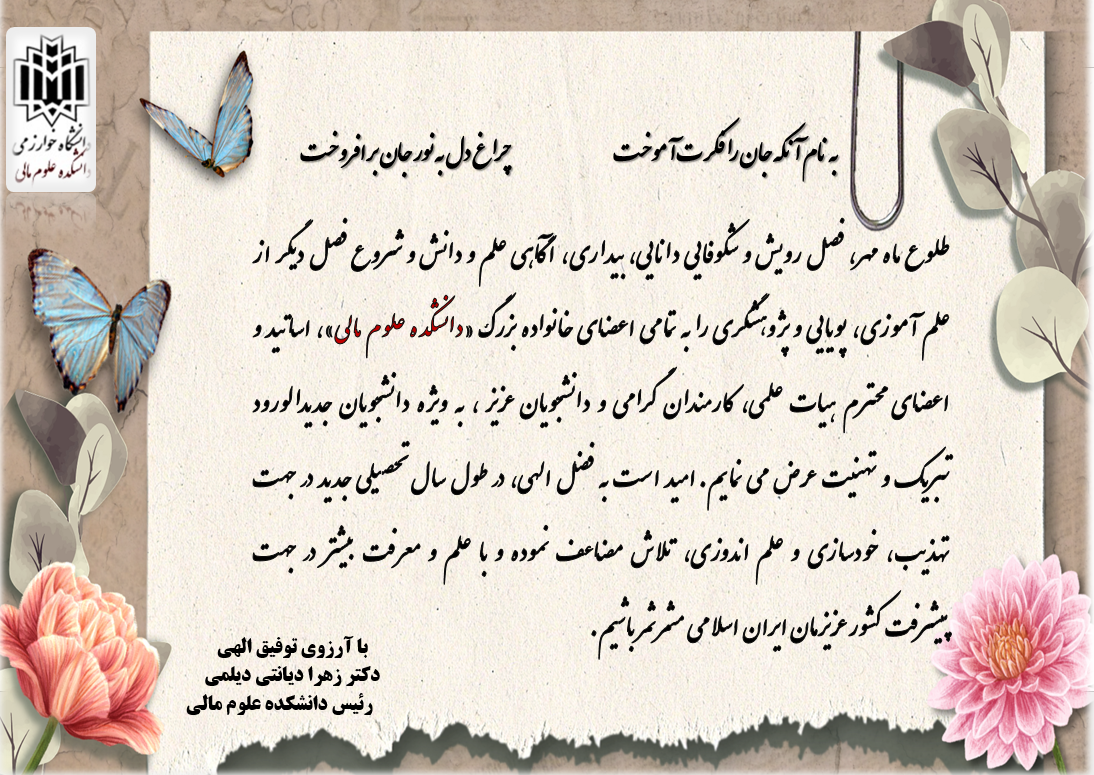 دانشگاه خوارزمی
دانشکده علوم مالی
به نام آنکه جان را فکرت آموخت چراغ دل به نور جان برافروخت
طلوع ماه مهر، فصل رویش و شکوفایی دانایی، بیداری، آگاهی علم و دانش و شروع فصل دیگر از
علم آموزی، پویایی و پژوهشگری را به تمامی اعضای خانواده بزرگ «دانشکده علوم مالی»، اساتید و
اعضای محترم هیات علمی، کارمندان گرامی و دانشجویان عزیز ، به ویژه دانشجویان جدیدالورود
تبریک و تهنیت عرض می نمایم. امید است به فضل الهی، در طول سال تحصیلی جدید در جهت
تهذیب، خودسازی و علم اندوزی، تلاش مضاعف نموده و با علم و معرفت بیشتر در جهت
پیشرفت کشور عزیزمان ایران اسلامی مثمرثمر باشیم.
با آرزوی توفیق الهی
دکتر زهرا دیانتی دیلمی
رئیس دانشکده علوم مالی